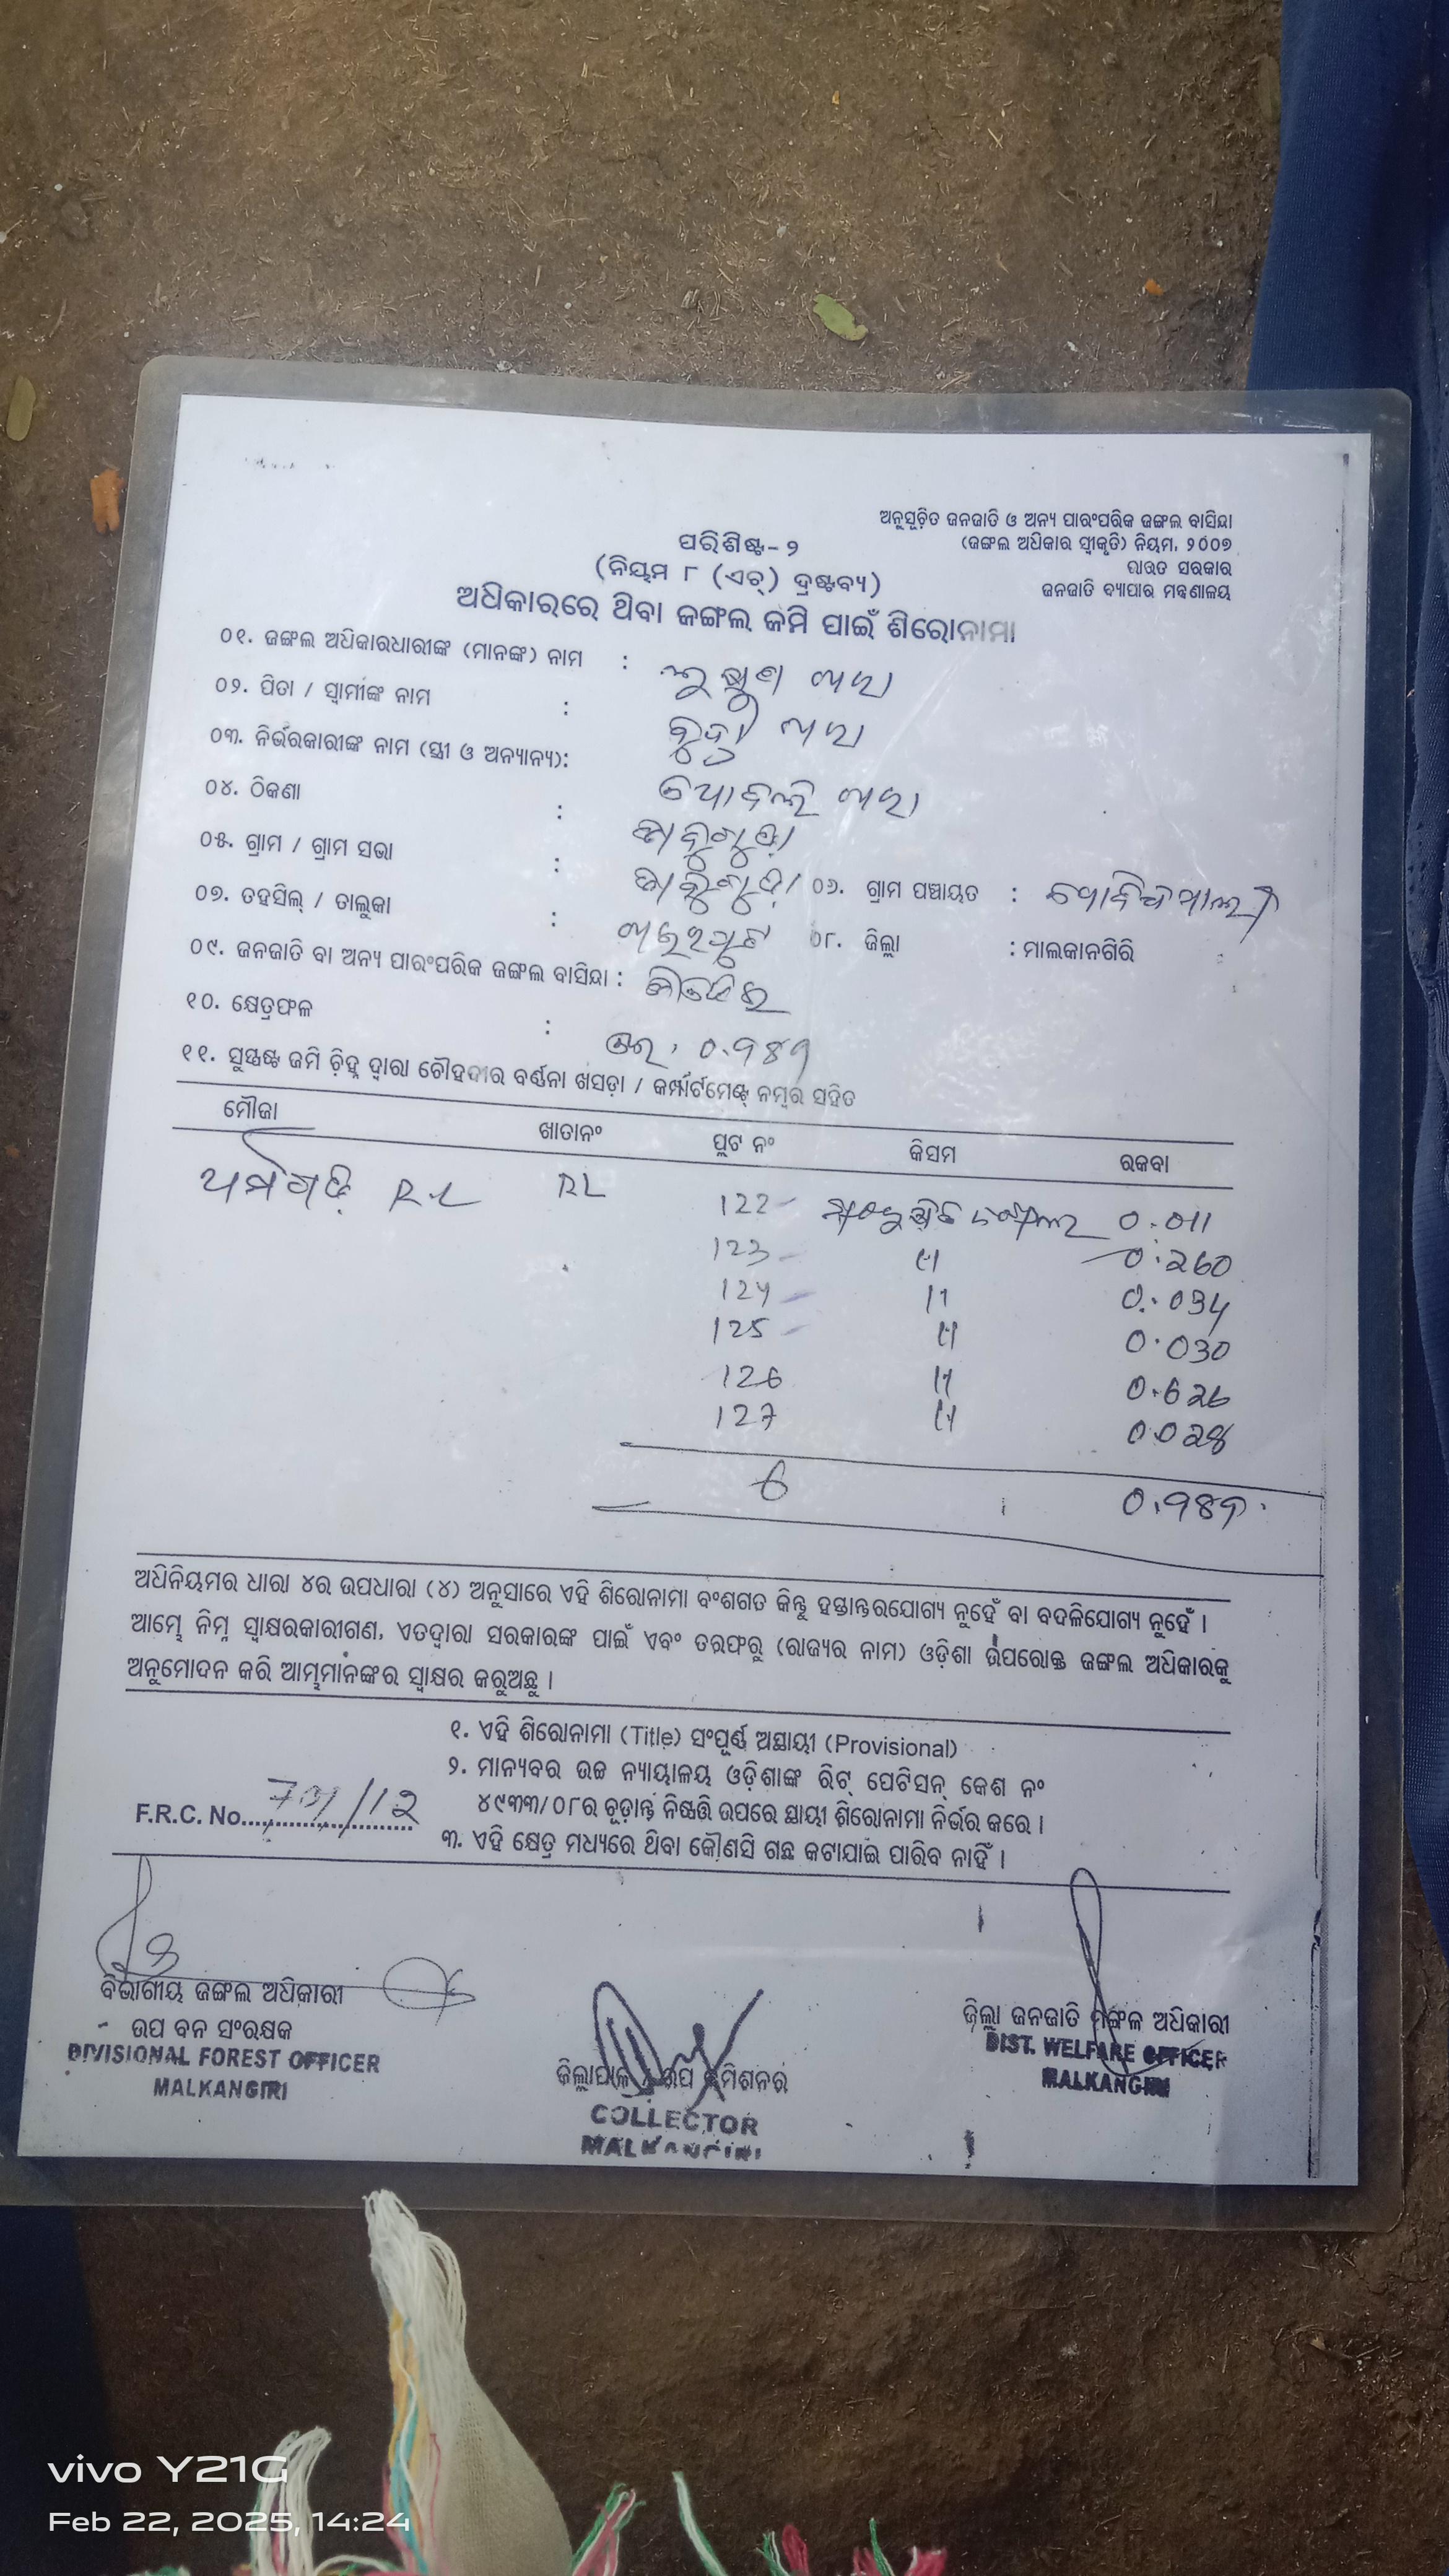 ଅନୁସୂଚିତ ଜନଜାତି ଓ ଅନ୍ୟ ପାରଂପରିକ ଜଙ୍ଗଲ ବାସିନ୍ଦା
(ଜଙ୍ଗଲ ଅଧିକାର ସ୍ୱୀକୃତି) ନିୟମ, ୨୦୦୭
ଭାରତ ସରକାର
ଜନଜାତି ବ୍ୟାପାର ମନ୍ତ୍ରଣାଳୟ
ପରିଶିଷ୍ଟ-୨
(ନିୟମ ୮ (ଏଚ୍) ଦ୍ରଷ୍ଟବ୍ୟ)
ଅଧିକାରରେ ଥିବା ଜଙ୍ଗଲ ଜମି ପାଇଁ ଶିରୋନାମା
୦୧. ଜଙ୍ଗଲ ଅଧିକାରଧାରୀଙ୍କ (ମାନଙ୍କ) ନାମ :
୦୨. ପିତା / ସ୍ୱାମୀଙ୍କ ନାମ :
୦୩. ନିର୍ଭରକାରୀଙ୍କ ନାମ (ସ୍ତ୍ରୀ ଓ ଅନ୍ୟାନ୍ୟ):
୦୪. ଠିକଣା :
୦୫. ଗ୍ରାମ / ଗ୍ରାମ ସଭା : ୦୬. ଗ୍ରାମ ପଞ୍ଚାୟତ :
୦୭. ତହସିଲ୍ / ତାଲୁକା : ୦୮. ଜିଲ୍ଲା : ମାଲକାନଗିରି
୦୯. ଜନଜାତି ବା ଅନ୍ୟ ପାରଂପରିକ ଜଙ୍ଗଲ ବାସିନ୍ଦା :
୧୦. କ୍ଷେତ୍ରଫଳ : 0.989
୧୧. ସୁସ୍ପଷ୍ଟ ଜମି ଚିହ୍ନ ଦ୍ୱାରା ଚୌହଦୀର ବର୍ଣ୍ଣନା ଖସଡ଼ା / କର୍ମ୍ପାର୍ଟମେଣ୍ଟ୍ ନମ୍ବର ସହିତ
ମୌଜା ଖାତାନଂ ପ୍ଲଟ ନଂ କିସମ ରକବା
RL RL 122 0.011
123 〃 0.260
124 〃 0.034
125 〃 0.030
126 〃 0.626
127 〃 0.028
6 0.989
ଅଧିନିୟମର ଧାରା ୪ର ଉପଧାରା (୪) ଅନୁସାରେ ଏହି ଶିରୋନାମା ବଂଶଗତ କିନ୍ତୁ ହସ୍ତାନ୍ତରଯୋଗ୍ୟ ନୁହେଁ ବା ବଦଳିଯୋଗ୍ୟ ନୁହେଁ ।
ଆମ୍ଭେ ନିମ୍ନ ସ୍ୱାକ୍ଷରକାରୀଗଣ, ଏତଦ୍ୱାରା ସରକାରଙ୍କ ପାଇଁ ଏବଂ ତରଫରୁ (ରାଜ୍ୟର ନାମ) ଓଡ଼ିଶା ଉପରୋକ୍ତ ଜଙ୍ଗଲ ଅଧିକାରକୁ
ଅନୁମୋଦନ କରି ଆମ୍ଭମାନଙ୍କର ସ୍ୱାକ୍ଷର କରୁଅଛୁ ।
୧. ଏହି ଶିରୋନାମା (Title) ସଂପୂର୍ଣ୍ଣ ଅସ୍ଥାୟୀ (Provisional)
୨. ମାନ୍ୟବର ଉଚ୍ଚ ନ୍ୟାୟାଳୟ ଓଡ଼ିଶାଙ୍କ ରିଟ୍ ପେଟିସନ୍ କେଶ ନଂ
୪୯୩୩/୦୮ର ଚୂଡ଼ାନ୍ତ ନିଷ୍ପତ୍ତି ଉପରେ ସ୍ଥାୟୀ ଶିରୋନାମା ନିର୍ଭର କରେ ।
F.R.C. No. /12
୩. ଏହି କ୍ଷେତ୍ର ମଧ୍ୟରେ ଥିବା କୌଣସି ଗଛ କଟାଯାଇ ପାରିବ ନାହିଁ ।
ବିଭାଗୀୟ ଜଙ୍ଗଲ ଅଧିକାରୀ
ଉପ ବନ ସଂରକ୍ଷକ
DIVISIONAL FOREST OFFICER
MALKANGIRI
ଜିଲ୍ଲାପାଳ / ଉପ କମିଶନର
COLLECTOR
MALKANGIRI
ଜିଲ୍ଲା ଜନଜାତି ମଙ୍ଗଳ ଅଧିକାରୀ
DIST. WELFARE OFFICER
MALKANGIRI
vivo Y21G
Feb 22, 2025, 14:24